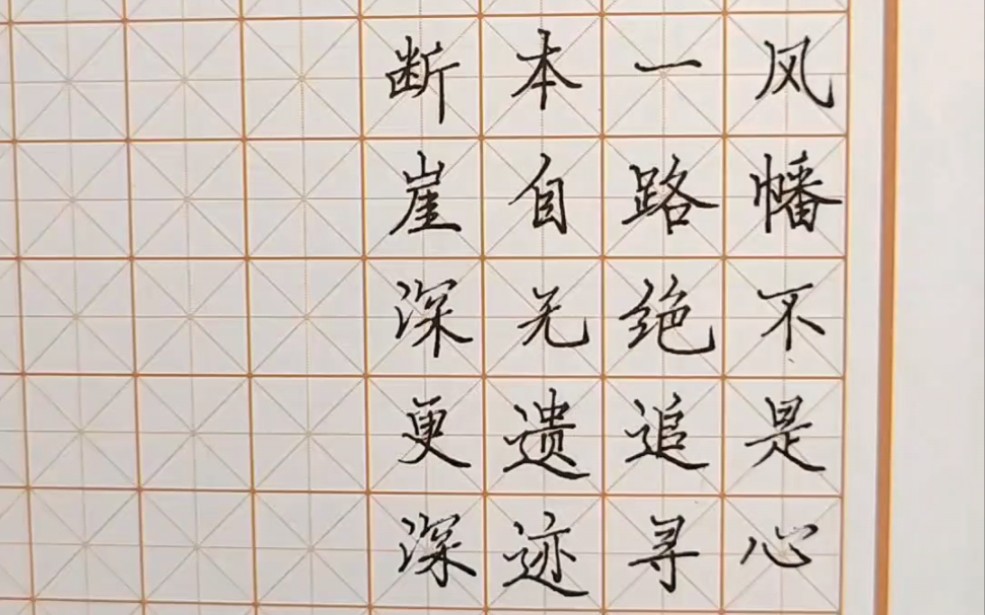 风幡不是心
一路绝追寻
本自无遗迹
断崖深更深